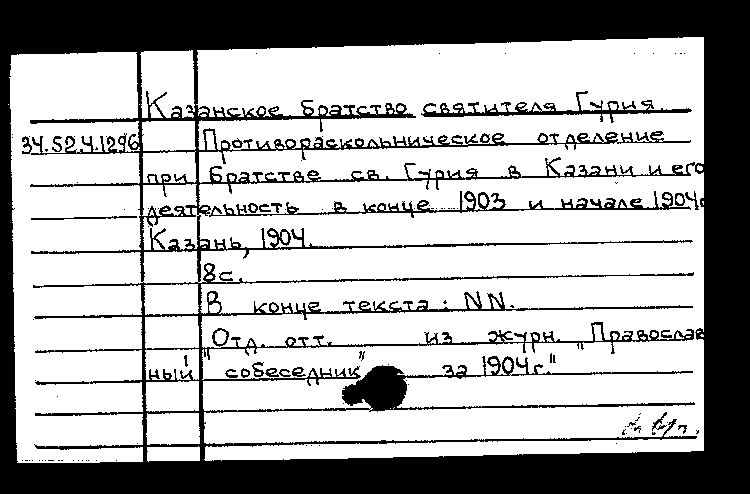 Казанское братство святителя Гурия.
34.52.4.1296 Противораскольническое отделение
при Братстве св. Гурия в Казани и его
деятельность в конце 1903 и начале 1904г
Казань, 1904.
8с.
В конце текста: NN.
"Отд. отт. из журн. „Православ
ный "собеседник" за 1904г."